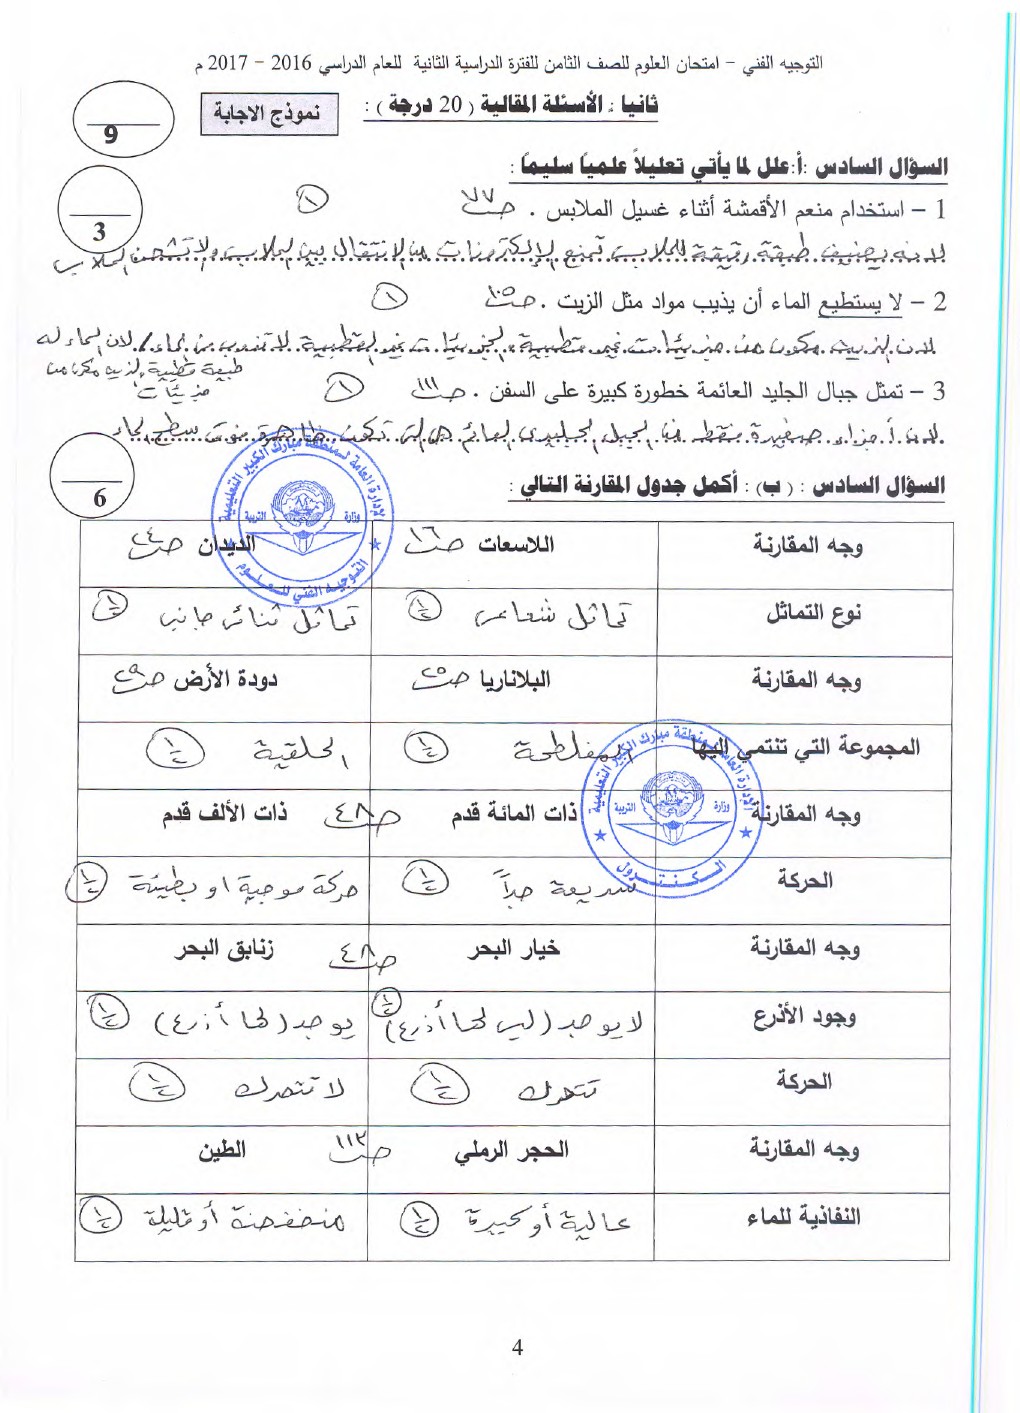 التوجيه الفني – امتحان العلوم للصف الثامن للفترة الدراسية الثانية للعام الدراسي 2016 – 2017 م
ثانيا : الأسئلة المقالية ( 20 درجة ) :
نموذج الاجابة
9
السؤال السادس :أ: علل لما يأتي تعليلاً علمياً سليماً :
3
1 – استخدام منعم الأقمشة أثناء غسيل الملابس . ص٧٧ ١
لانه يضيف طبقة رقيقة للملابس تمنع الإلكترونات من الانتقال بين الملابس ولا تشحن الملابس
2 – لا يستطيع الماء أن يذيب مواد مثل الزيت . ص١٠٥ ١
لان الزيت مكون من جزيئات غير قطبية والجزيئات غير القطبية لا تذوب من الماء / لان الماء له
طبيعة قطبية والزيت مكون من
جزيئات
3 – تمثل جبال الجليد العائمة خطورة كبيرة على السفن . ص١١١ ١
لان أجزاء صغيرة فقط من الجبل الجليدي العائم هي التي تكون ظاهرة فوق سطح الماء
السؤال السادس : (ب) : أكمل جدول المقارنة التالي :
6
وجه المقارنة اللاسعات ص١٦ الديدان ص٢٤
نوع التماثل تماثل شعاعي ½ تماثل ثنائي جانبي ½
وجه المقارنة البلاناريا ص٢٥ دودة الأرض ص٢٩
المجموعة التي تنتمي إليها المفلطحة ½ الحلقية ½
وجه المقارنة ذات المائة قدم ص٤٨ ذات الألف قدم
الحركة سريعة جداً ½ حركة موجية او بطيئة ½
وجه المقارنة خيار البحر ص٤٨ زنابق البحر
وجود الأذرع لا يوجد (ليس لها أذرع) ½ يوجد (لها أذرع) ½
الحركة تتحرك ½ لا تتحرك ½
وجه المقارنة الحجر الرملي ص١١٣ الطين
النفاذية للماء عالية أو كبيرة ½ منخفضة أو قليلة ½
الإدارة العامة لمنطقة مبارك الكبير التعليمية
وزارة التربية
التوجيه الفني للعلوم
الإدارة العامة لمنطقة مبارك الكبير التعليمية
وزارة التربية
الكنترول
4